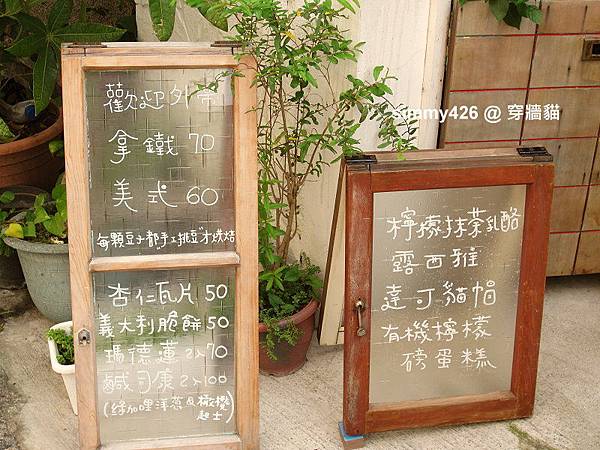 歡迎外帶
拿鐵 70
美式 60
每顆豆子都手工挑豆才烘焙
杏仁瓦片 50
義大利脆餅 50
瑪德蓮 2入70
鹹司康 2入100
(綠加哩洋蔥及橄欖
起士)
summy426 @ 穿牆貓
檸檬抹茶乳酪
露西雅
達可貓帽
有機檸檬
磅蛋糕